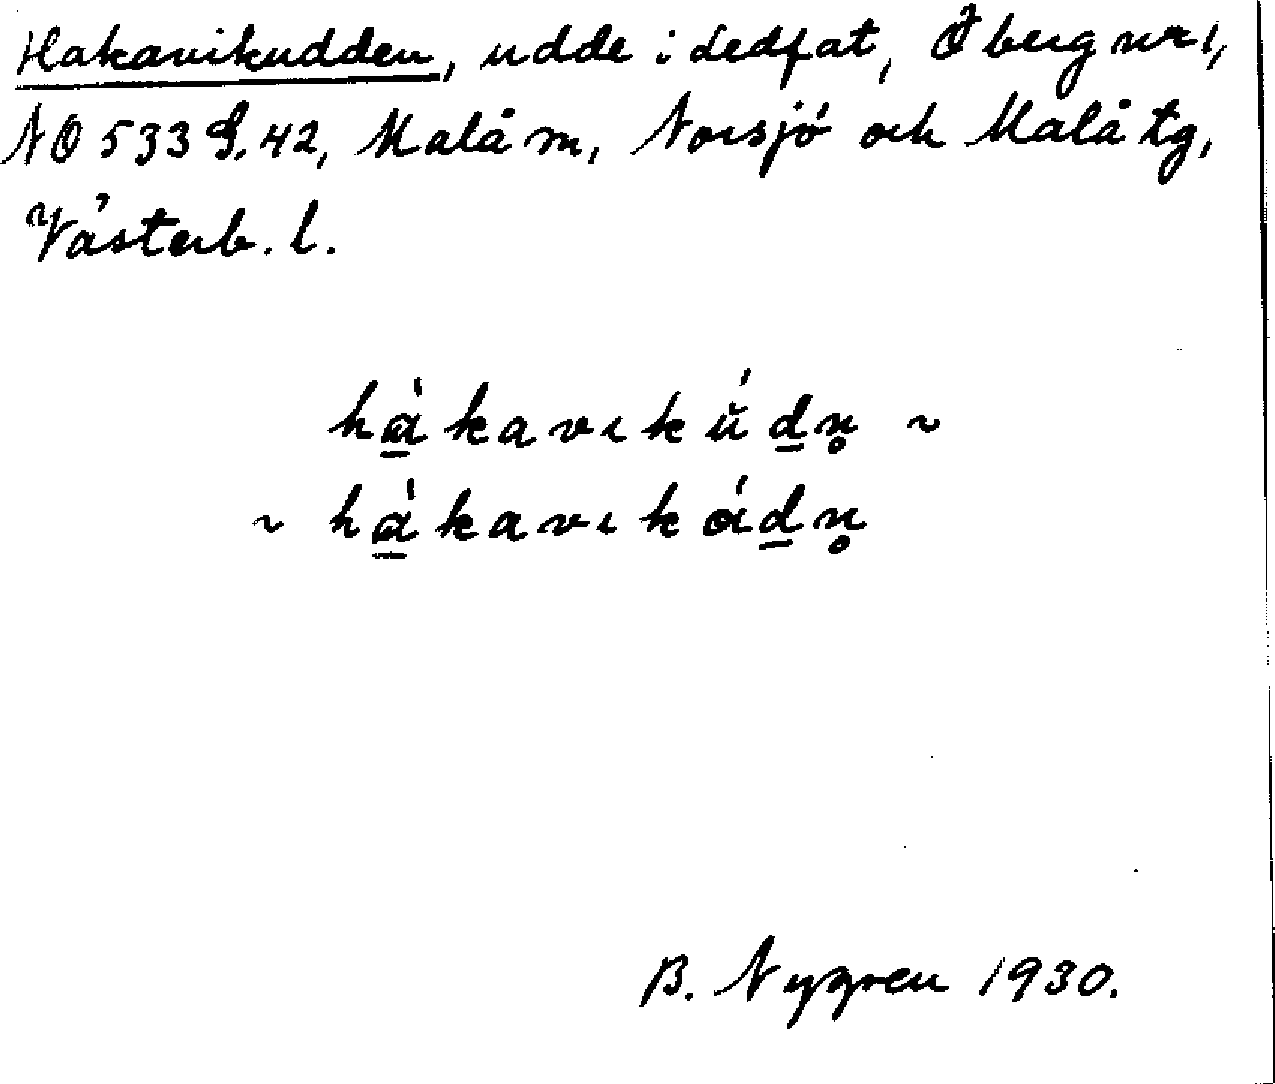 Hakavikudden, udde i Ledfat, Öberg nr 1,
NO 533 S. 42, Malå m, Norsjö och Malå tg,
Västerb. l.
hà̱kavıkŭ́d̲n̥ ~
~ hà̱kavıkád̲n̥
B. Nygren 1930.